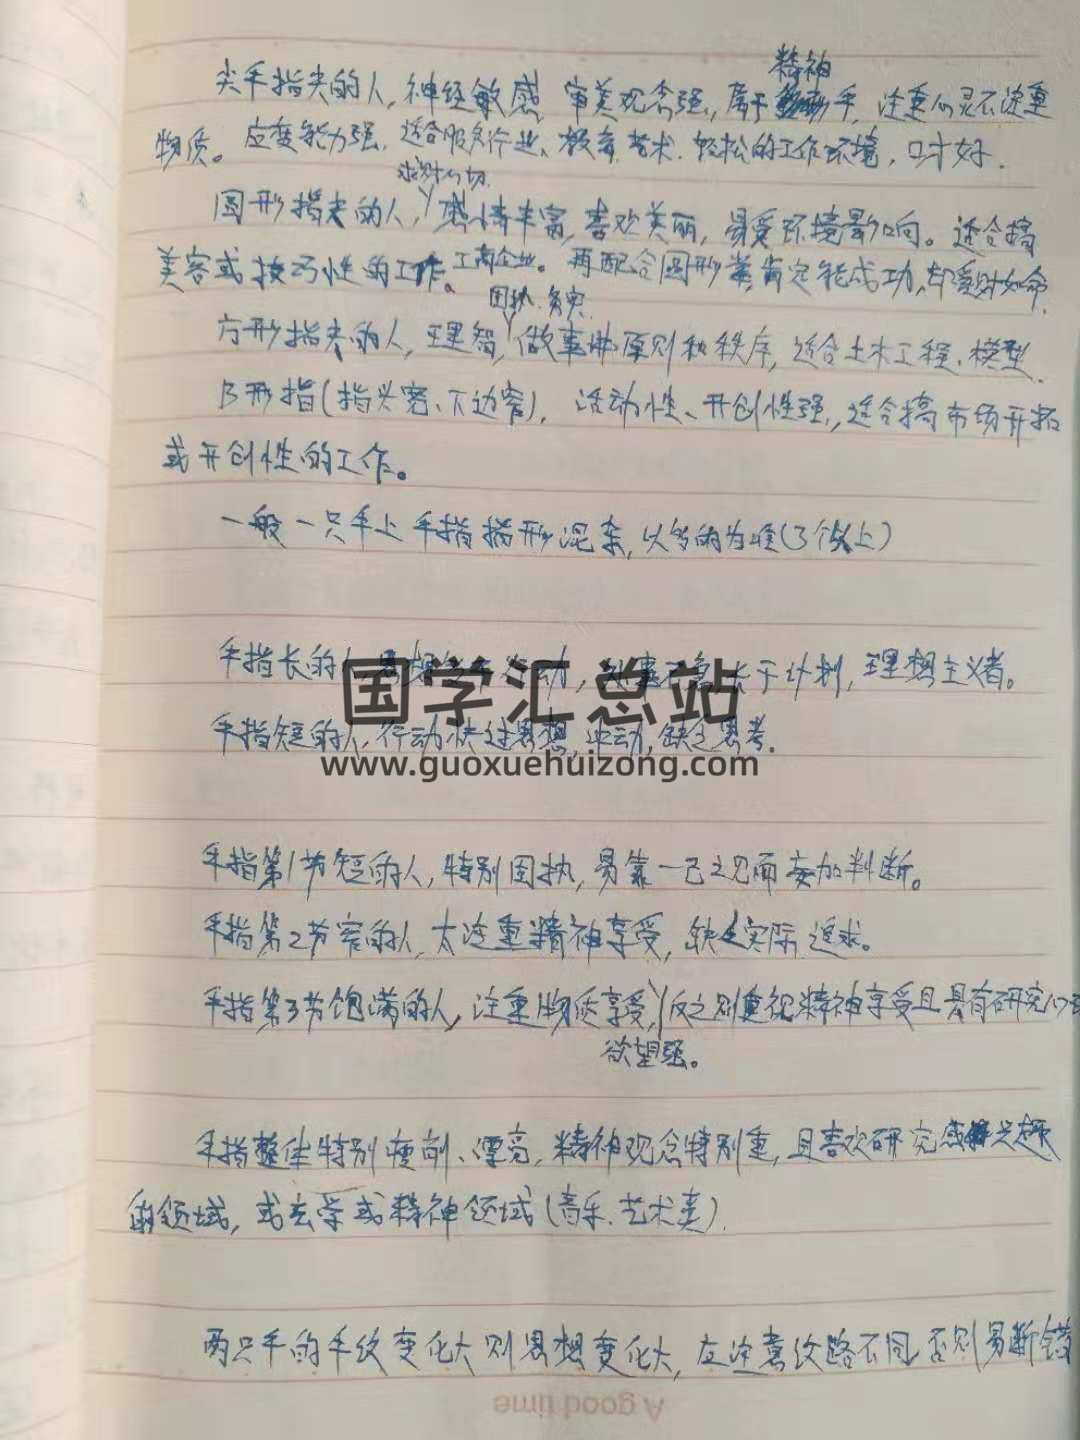 精神
尖手指尖的人,神经敏感 审美观念强,属于手,注重心灵不注重
物质。应变能力强,适合服务行业、教育.艺术.轻松的工作环境,口才好.
求财心切.
圆形指尖的人,感情丰富,喜欢美丽,易受环境影响。适合搞
美容或技巧性的工作。工商企业。再配合圆形掌肯定能成功,却爱财如命.
固执.务实.
方形指尖的人,理智,做事讲原则和秩序,适合土木工程.模型.
B形指(指头宽、下边窄),活动性、开创性强,适合搞市场开拓
或开创性的工作。
一般一只手上手指指形混杂,以多的为准(3个以上)
手指长的人,长于计划,理想主义者。
国学汇总站
手指短的人,行动快过思想,冲动,缺乏思考.
www.guoxuehuizong.com
手指第1节短的人,特别固执,易靠一己之见而妄加判断。
手指第2节窄的人,太注重精神享受,缺乏实际追求。
手指第3节饱满的人,注重物质享受,反之则重视精神享受且具有研究心
欲望强。
手指整体特别瘦削、漂亮,精神观念特别重,且喜欢研究感兴趣
的领域,或玄学或精神领域(音乐.艺术类).
两只手的手纹变化大则思想变化大,应注意纹路不同,否则易断错
A good time